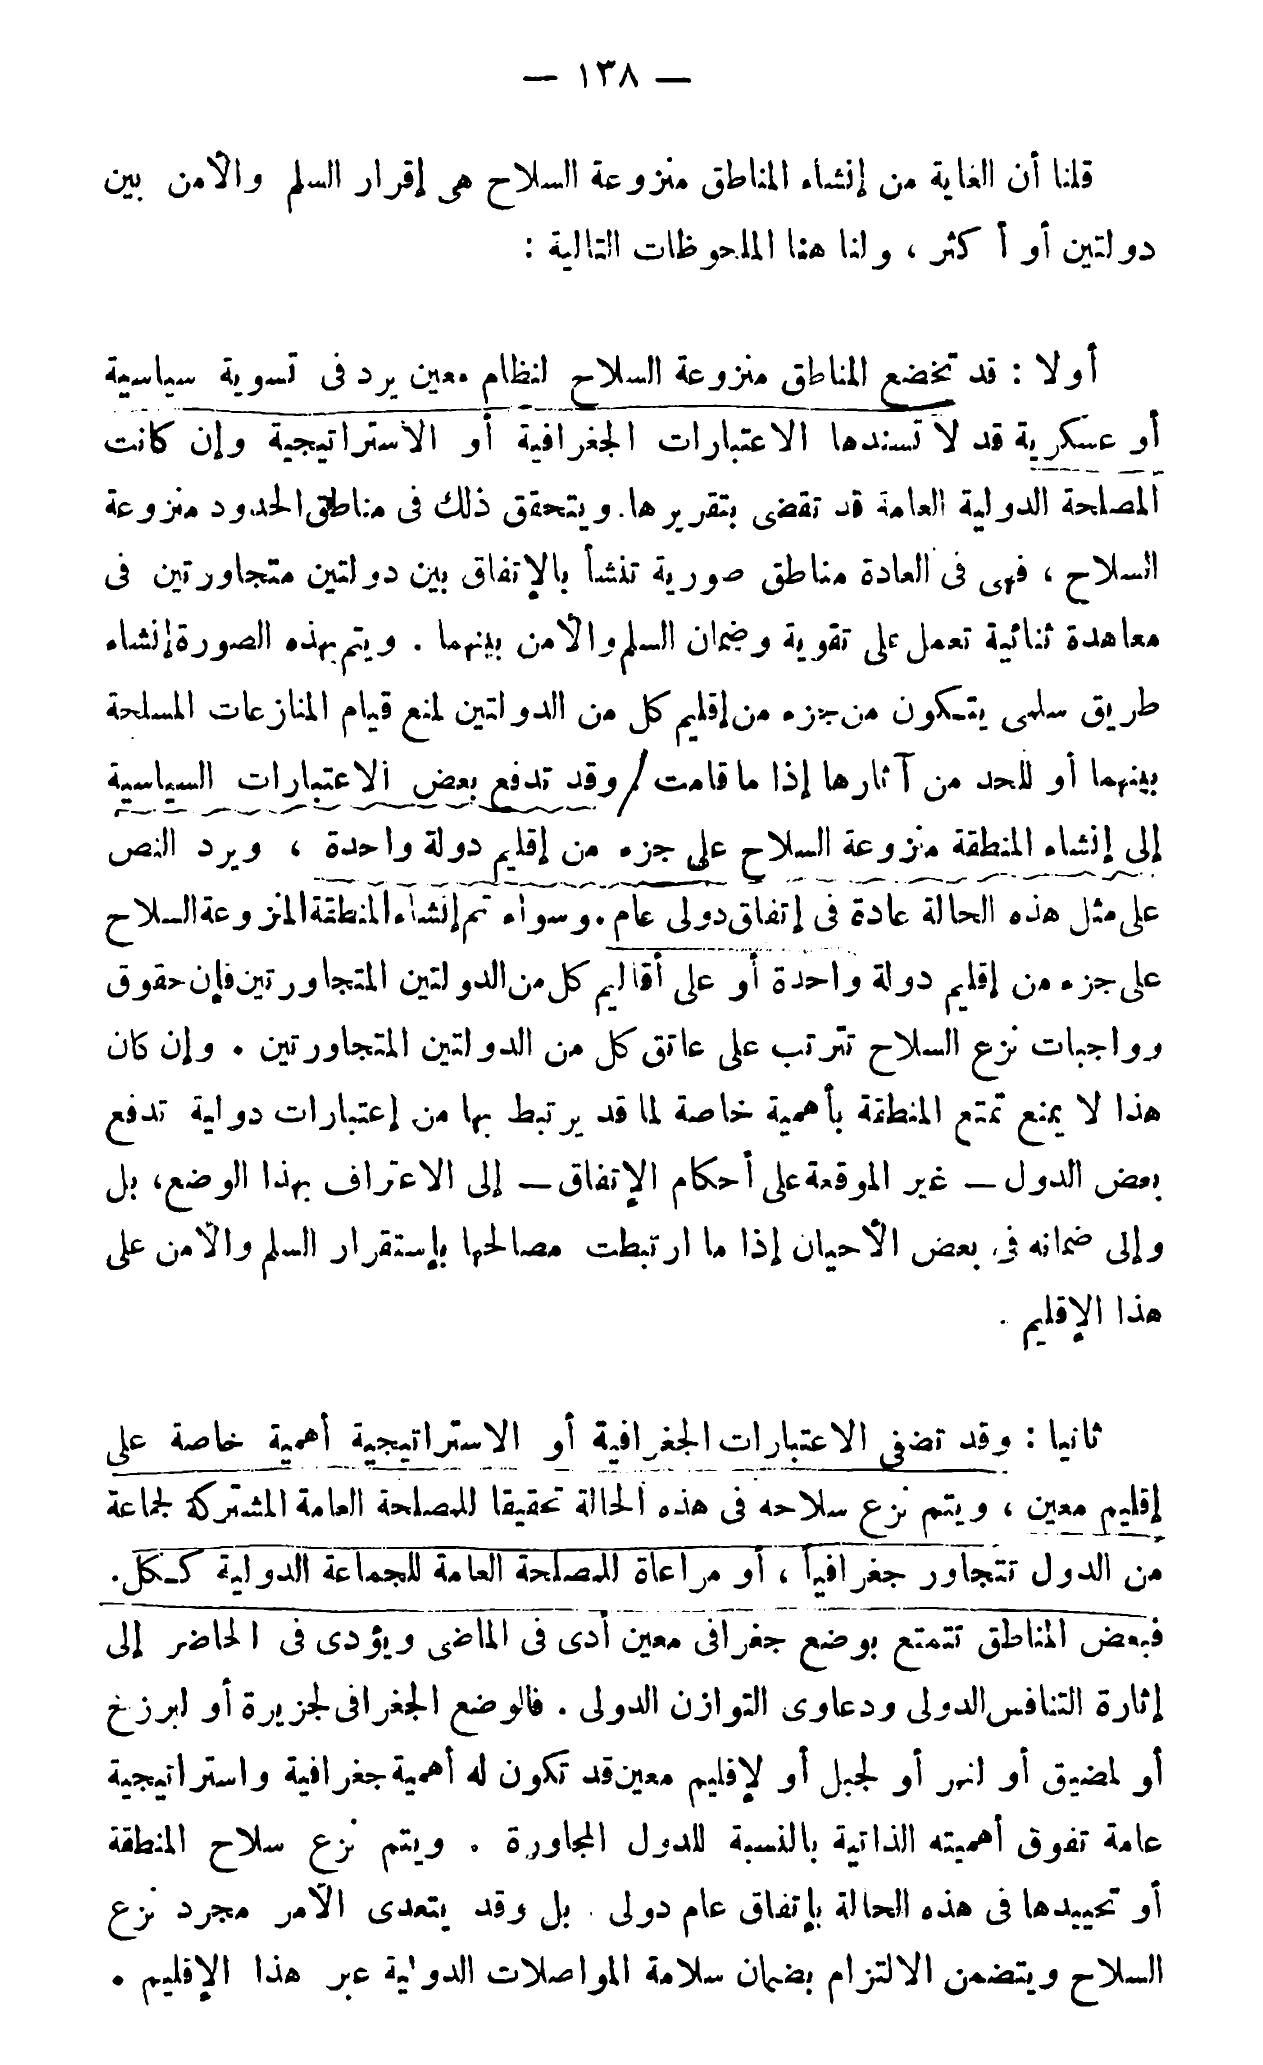 — ١٣٨ —
قلنا أن الغاية من إنشاء المناطق منزوعة السلاح هى إقرار السلم والأمن بين
دولتين أو أكثر ، ولنا هنا الملحوظات التالية :
أولا : قد تخضع المناطق منزوعة السلاح لنظام معين يرد فى تسوية سياسية
أو عسكرية قد لا تسندها الاعتبارات الجغرافية أو الاستراتيجية وإن كانت
المصلحة الدولية العامة قد تقضى بتقريرها. ويتحقق ذلك فى مناطق الحدود منزوعة
السلاح ، فهى فى العادة مناطق صورية تنشأ بالإتفاق بين دولتين متجاورتين فى
معاهدة ثنائية تعمل على تقوية وضمان السلم والأمن بينهما . ويتم بهذه الصورة إنشاء
طريق سلمى يتكون من جزء من إقليم كل من الدولتين لمنع قيام المنازعات المسلحة
بينهما أو للحد من آثارها إذا ما قامت / وقد تدفع بعض الاعتبارات السياسية
إلى إنشاء المنطقة منزوعة السلاح على جزء من إقليم دولة واحدة ، ويرد النص
على مثل هذه الحالة عادة فى إتفاق دولى عام . وسواء تم إنشاء المنطقة المنزوعة السلاح
على جزء من إقليم دولة واحدة أو على أقاليم كل من الدولتين المتجاورتين فإن حقوق
وواجبات نزع السلاح تترتب على عاتق كل من الدولتين المتجاورتين . وإن كان
هذا لا يمنع تمتع المنطقة بأهمية خاصة لما قد يرتبط بها من إعتبارات دولية تدفع
بعض الدول — غير الموقعة على أحكام الإتفاق — إلى الاعتراف بهذا الوضع، بل
وإلى ضمانه فى بعض الأحيان إذا ما ارتبطت مصالحها بإستقرار السلم والأمن على
هذا الإقليم .
ثانيا : وقد تضفى الاعتبارات الجغرافية أو الاستراتيجية أهمية خاصة على
إقليم معين ، ويتم نزع سلاحه فى هذه الحالة تحقيقا للمصلحة العامة المشتركة لجماعة
من الدول تتجاور جغرافياً ، أو مراعاة للمصلحة العامة للجماعة الدولية ككل.
فبعض المناطق تتمتع بوضع جغرافى معين أدى فى الماضى ويؤدى فى الحاضر إلى
إثارة التنافس الدولى ودعاوى التوازن الدولى . فالوضع الجغرافى لجزيرة أو لبرزخ
أو لمضيق أو لنهر أو لجبل أو لإقليم معين قد تكون له أهمية جغرافية واستراتيجية
عامة تفوق أهميته الذاتية بالنسبة للدول المجاورة . ويتم نزع سلاح المنطقة
أو تحييدها فى هذه الحالة بإتفاق عام دولى . بل وقد يتعدى الأمر مجرد نزع
السلاح ويتضمن الالتزام بضمان سلامة المواصلات الدولية عبر هذا الإقليم .